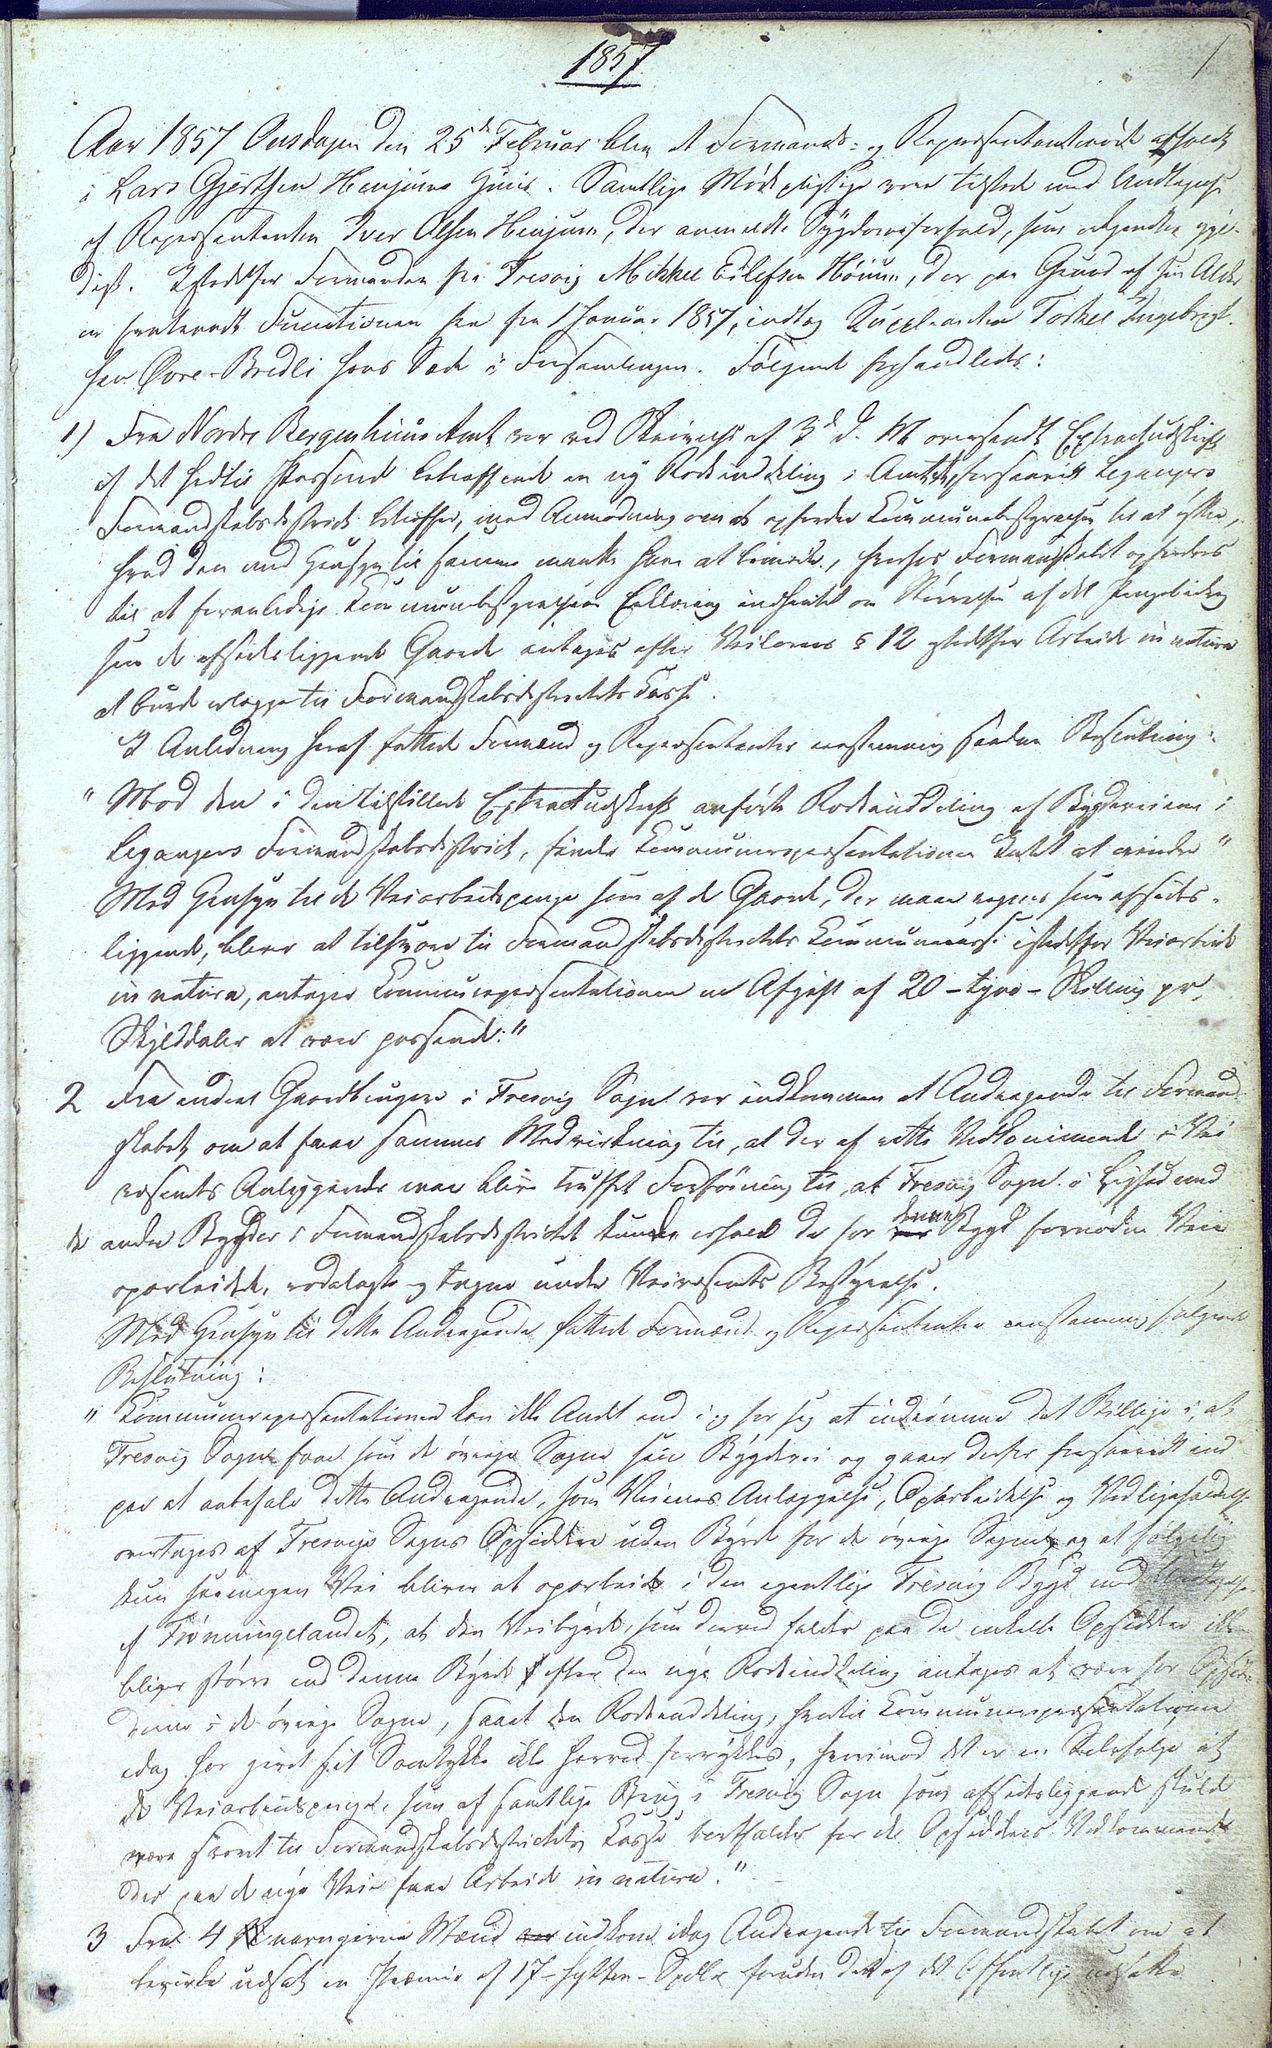 1857
1
Aar 1857 Onsdagen den 25de Februar blev et Formands- og Repræsentantmøde afholdt
i Lars Gjertsen Henjums Huus. Samtlige Mødepligtige vare tilstede med Undtagelse
af Repræsentanten Iver Olsen Henjum, der anmeldte Sygdomsforfald, som erkjendtes gyl-
digt. Istedetfor Formanden fra Fresvig Mikkel Eilefsen Høium, der paa Grund af sin Alder
er fratraadt Functionen fra 1 Januar 1857, indtog Suppleanten Torkel Ingebrigt-
sen Øvre-Bredli hans Sæde i Forsamlingen. Følgende forhandledes:
1) Fra Nordre Bergenhuus Amt var ved Skrivelse af 3de d. M. oversendt Extractudskrift
af det hidtil Passerede betræffende en ny Rodeinddeling i Amtet, forsaavidt Leganger's
Formandskabsdistrict betræffer, med Anmodning om at opfordre Kommunebestyrelsen til at yttre,
hvad den med Hensyn til samme maatte have at bemærke, hvorhos Formandskabet opfordres
til at foranledige Kommunebestyrelsens Erklæring indhentet om Størrelsen af det Pengebidrag
som de afsidesliggende Gaarde antages efter Veilovens § 12 istedetfor Arbeide in natura
at burde erlægge til Formandskabsdistrictets Kasse.
I Anledning heraf fattede Formænd og Repræsentanter eenstemmig saadan Beslutning:
" Mod den i den tilstillede Extractudskrift anførte Rodeinddeling af Bygdeveiene i
Leganger's Formandskabsdistrict, finder Kommunerepræsentationen Intet at erindre"
Med Hensyn til de Veiarbeidspenge som af de Gaarde, der maae regnes som afsides-
liggende, bliver at tilsvare til Formandskabsdistrictets Kommunecasse istedetfor Veiarbeide
in natura, antager Kommunerepræsentationen en Afgift af 20 - tyve - Skilling pr.
Skylddaler at være passende."
2 Fra endeel Gaardbrugere i Fresvig Sogn var indkommen et Andragende til Formand-
skabet om at faae sammes Medvirkning til, at der af rette Vedkommende i Vei-
væsenets Anliggende maa blive truffet Forføining til, at Fresvig Sogn i Lighed med
de andre Bygder i Formandskabsdistrictet kunde erholde de for denne Bygd fornødne Veie
oparbeidede, rodelagte og tagne under Veivæsenets Bestyrelse.
Med Hensyn til dette Andragende fattede Formænd og Repræsentanter eenstemmig følgende
Beslutning:
" Kommunerepræsentationen kan ikke Andet end i og for sig at indrømme det Billige i, at
Fresvig Sogn faaer som de øvrige Sogne sin Bygdevei og gaaer derfor forsaavidt ind
paa at anbefale dette Andragende, som Veienes Anlæggelse, Oparbeidelse og Vedligeholdelse
overtages af Fresvigs Sogns Opsiddere uden Byrde for de øvrige Sogne og at følgelig
kun saamegen Vei bliver at oparbeide i den egentlige Fresvig Bygd med Undtagelse
af Frønningelandet, at den Veibyrde, som derved falder paa de enkelte Opsiddere ikke
bliver større end denne Byrde efter den nye Rodeinddeling antages at være for Opsid-
derne i de øvrige Sogne, samt den Rodeinddeling, hvortil Kommunerepræsentationen
idag har givet sit Samtykke ikke herved forrykkes, hvorimod det er en Selvfølge at
de Veiarbeidspenge, som af samtlige Brug i Fresvig Sogn som afsidesliggende skulde
være svaret til Formandskabsdistrictets Kasse bortfalder for de Opsidderes Vedkommende
der paa de nye Veie faae Arbeide in natura."
3 Fra 4 navngivne Mænd indkom idag Andragende til Formandskabet om at
bevirke udsat en Præmie af 17 - sytten - Spdlr foruden det af det Offentlige udsatte